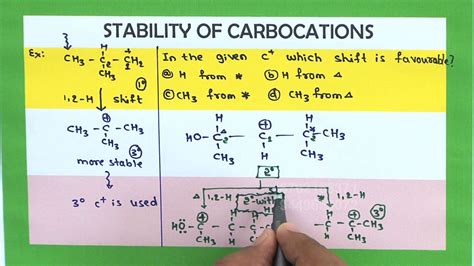 STABILITY OF CARBOCATIONS
Ex:
H
CH3 - C - CH2
+
2
1
CH3
1°
1,2-H shift
CH3 - C - CH3
+
CH3
3°
more stable
3° c+ is used
In the given c+ which shift is favourable?
ⓐ H from * ⓑ H from △
ⓒ CH3 from * ⓓ CH3 from △
H H H
HO - C - C - C - CH3
△ + *
3 1 2
CH3 CH3
2°
△ 1,2-H * 1,2-H
2° with
HO - C - C - C
+ H H
CH3 H
C - C - CH3
+ 3°
H CH3